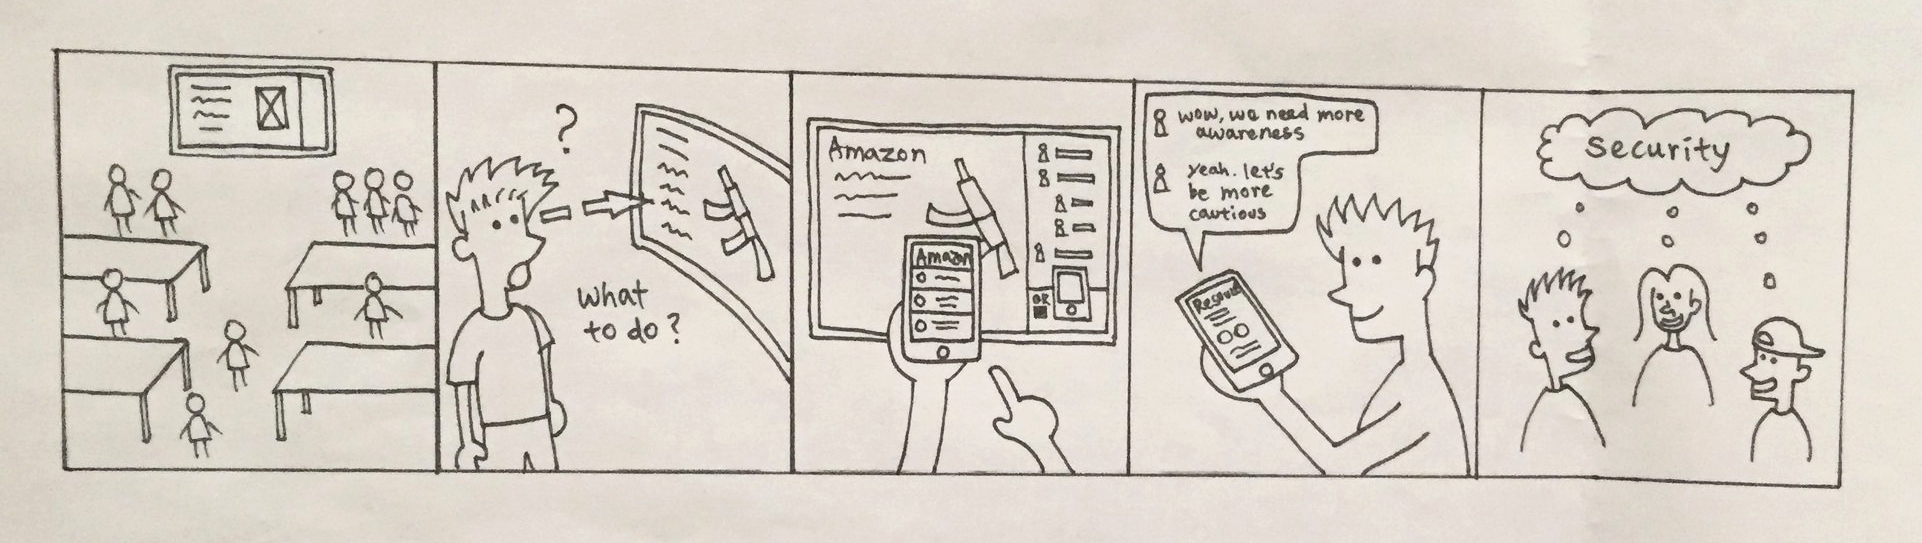 ?
What
to do?
Amazon
Amazon
OR
wow, we need more
awareness
yeah. let's
be more
cautious
Security